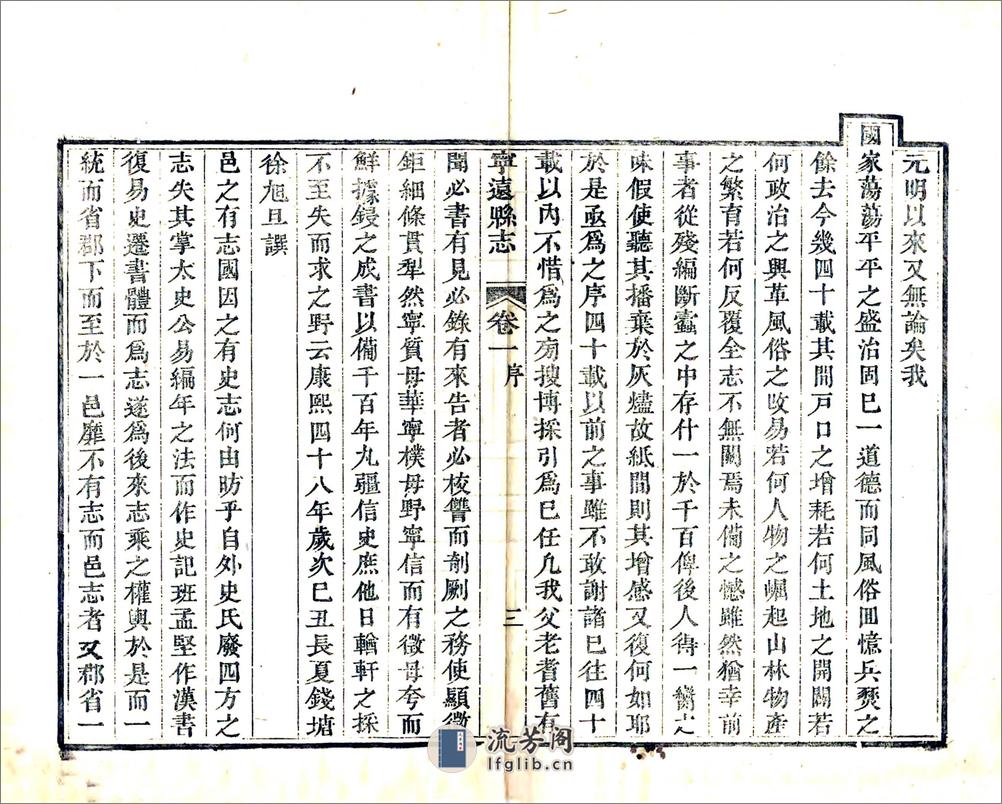 元明以來又無論矣我
國家蕩蕩平平之盛治固已一道德而同風俗囬憶兵燹之
餘去今幾四十載其間戸口之增耗若何土地之開闢若
何政治之興革風俗之改易若何人物之崛起山林物產
之繁育若何反覆全志不無闕焉未備之憾雖然猶幸前
事者從殘編斷蠹之中存什一於千百俾後人得一臠之
味假使聽其播棄於灰燼故紙間則其增感又復何如耶
於是亟爲之序四十載以前之事雖不敢謝諸已往四十
載以內不惜爲之旁搜博採引爲已任凡我父老耆舊有
寧遠縣志 卷一 序 三
聞必書有見必錄有來告者必校讐而剞劂之務使顯微
鉅細條貫犁然寧質毋華寧樸毋野寧信而有徵毋夸而
鮮據鋟之成書以備千百年九疆信史庶他日輶軒之採
不至失而求之野云康熙四十八年歲次已丑長夏錢塘
徐旭旦譔
邑之有志國因之有史志何由昉乎自外史氏廢四方之
志失其掌太史公易編年之法而作史記班孟堅作漢書
復易史遷書體而爲志遂爲後來志乘之權輿於是而一
統而省郡下而至於一邑靡不有志而邑志者又郡省一
流芳阁
lfglib.cn